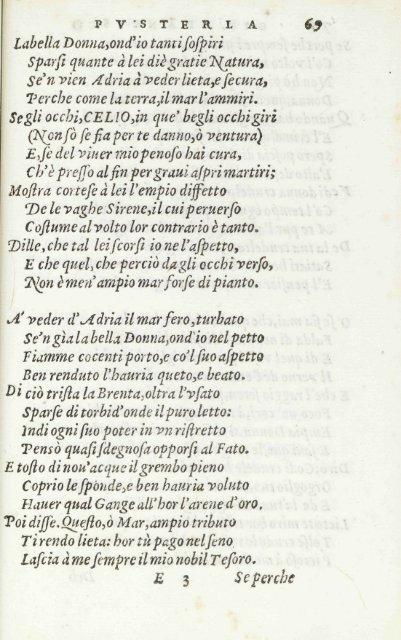 PVSTERLA 69
Labella Donna, ond'io tanti sospiri
Sparsi quante à lei diè gratie Natura,
Se'n vien Adria à veder lieta, e secura,
Perche come la terra, il mar l'ammiri.
Se gli occhi, CELIO, in que' begli occhi giri
(Non sò se fia per te danno, ò ventura)
E, se del viuer mio penoso hai cura,
Ch'è presso al fin per graui aspri martiri;
Mostra cortese à lei l'empio diffetto
De le vaghe Sirene, il cui peruerso
Costume al volto lor contrario è tanto.
Dille, che tal lei scorsi io ne l'aspetto,
E che quel, che perciò da gli occhi verso,
Non è men' ampio mar forse di pianto.
A' veder d'Adria il mar fero, turbato
Se'n gìa la bella Donna, ond'io nel petto
Fiamme cocenti porto, e co'l suo aspetto
Ben renduto l'hauria queto, e beato.
Di ciò trista la Brenta, oltra l'vsato
Sparse di torbid'onde il puro letto:
Indi ogni suo poter in vn ristretto
Pensò quasi sdegnosa opporsi al Fato.
E tosto di nou'acque il grembo pieno
Coprio le sponde, e ben hauria voluto
Hauer qual Gange all'hor l'arene d'oro.
Poi disse. Questo, ò Mar, ampio tributo
Ti rendo lieta: hor tù pago nel seno
Lascia à me sempre il mio nobil Tesoro.
E 3 Se perche